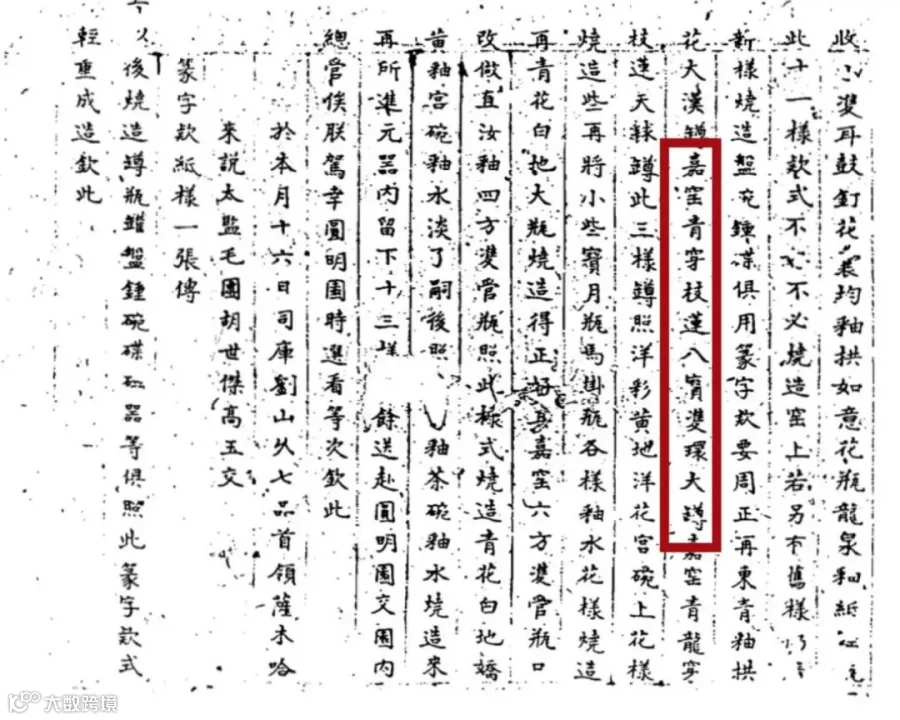 收小雙耳鼓釘花囊均釉拱如意花瓶龍泉和紙
此十一樣款式不必燒造窑上若另有舊樣
新樣燒造盤碗鍾碟俱用篆字款要周正再東青釉拱
花大漢罇嘉窑青穿枝蓮八寶雙環大罇嘉窑青龍穿
枝蓮天球罇此三樣罇照洋彩黃地洋花宮碗上花樣
燒造些再將小些寶月瓶馬掛瓶各樣釉水花樣燒造
再青花白地大瓶燒造得正好再嘉窑六方雙管瓶口
改做直汝釉四方雙管瓶照此樣式燒造青花白地嬌
黃釉宮碗釉水淡了嗣後照釉茶碗釉水燒造來
再所進元器內留下十三樣餘送赴圓明園交園內
總管俟朕駕幸圓明園時選看等次欽此
於本月十六日司庫劉山久七品首領薩木哈
來說太監毛團胡世傑高玉交
篆字款紙樣一張傳
以後燒造罇瓶罐盤鍾碗碟磁器等俱照此篆字款式
輕重成造欽此
大数跨境